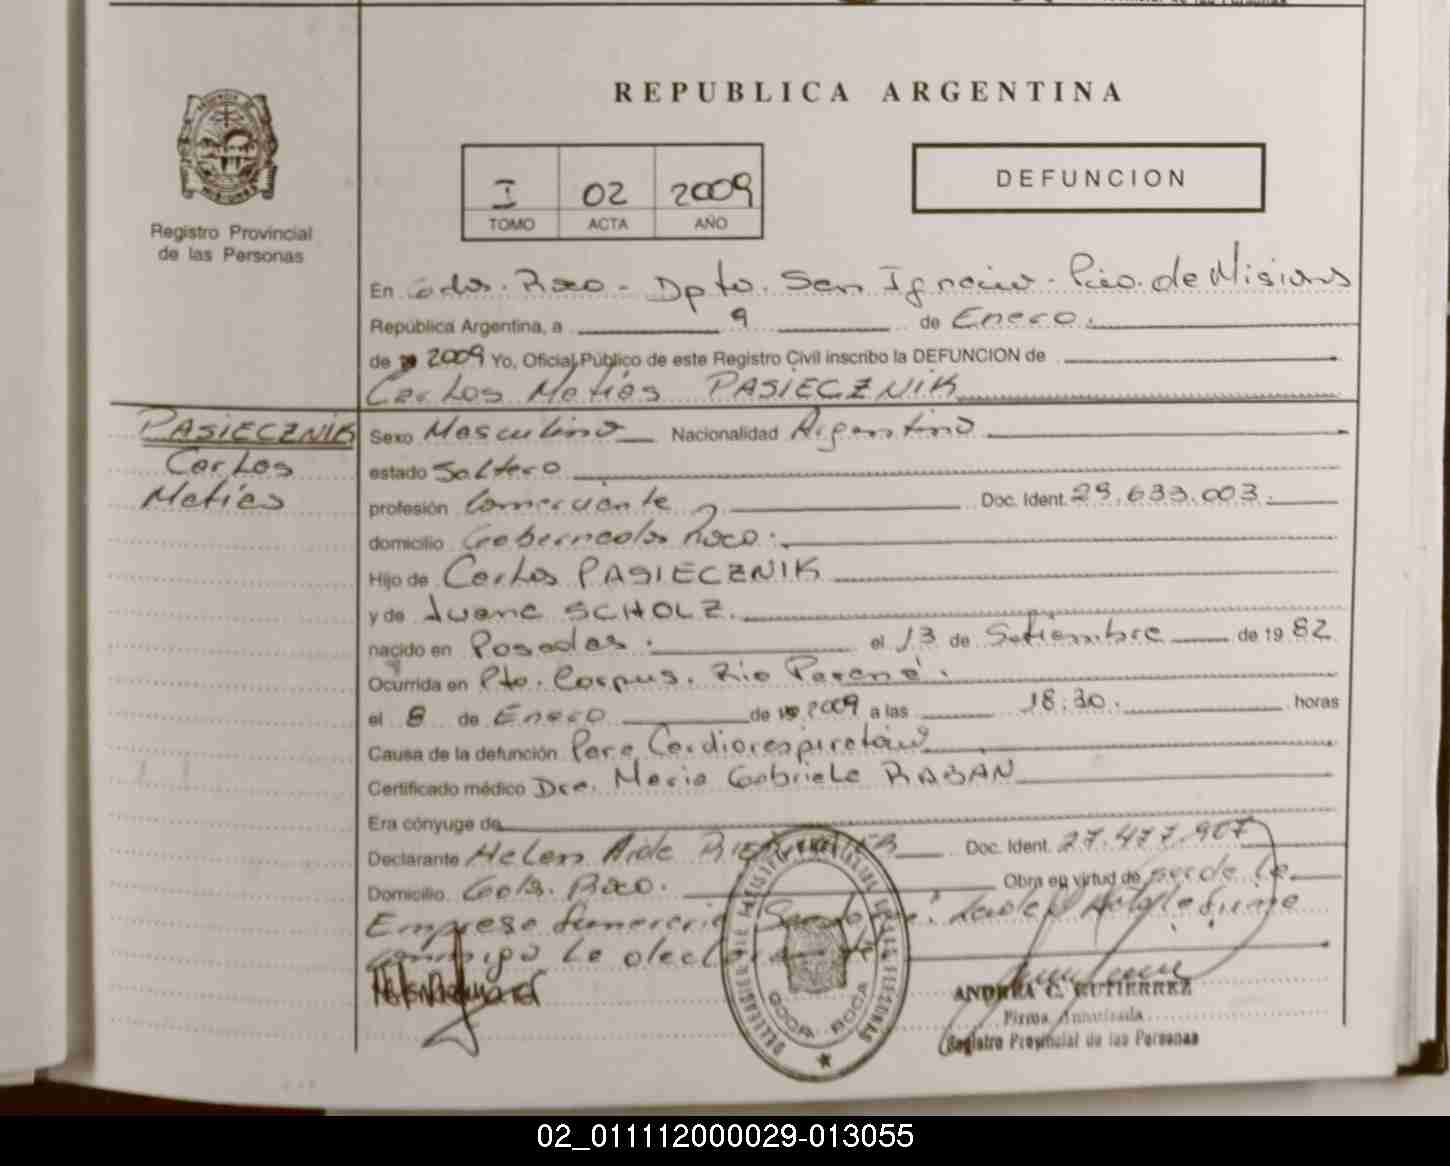 REPUBLICA ARGENTINA
I 02 2009
TOMO ACTA AÑO
DEFUNCION
Registro Provincial
de las Personas
En Gdor. Roca - Dpto. San Ignacio - Pcia. de Misiones
República Argentina, a 9 de Enero.
de 19 2009 Yo, Oficial Público de este Registro Civil inscribo la DEFUNCION de
Carlos Matías PASIECZNIK
PASIECZNIK
Carlos
Matías
Sexo Masculino Nacionalidad Argentino
estado Soltero
profesión Comerciante Doc. Ident. 29.633.003.
domicilio Gobernador Roca.
Hijo de Carlos PASIECZNIK
y de Juana SCHOLZ.
nacido en Posadas. el 13 de Setiembre de 19 82
Ocurrida en Pto. Corpus. Río Paraná.
el 8 de Enero de 19 2009 a las 18:30. horas
Causa de la defunción Paro Cardiorespiratorio
Certificado médico Dra. Maria Gabriela RABAN
Era cónyuge de
Declarante Helen Aide Doc. Ident. 27.477.907
Domicilio Gdor. Roca. Obra en virtud de ser de la
Empresa funeraria firma
conmigo la declarante
DELEGACION REGISTRO PROVINCIAL DE LAS PERSONAS
GDOR. ROCA
ANDREA C. GUTIERREZ
Firma Autorizada
Registro Provincial de las Personas
02_011112000029-013055